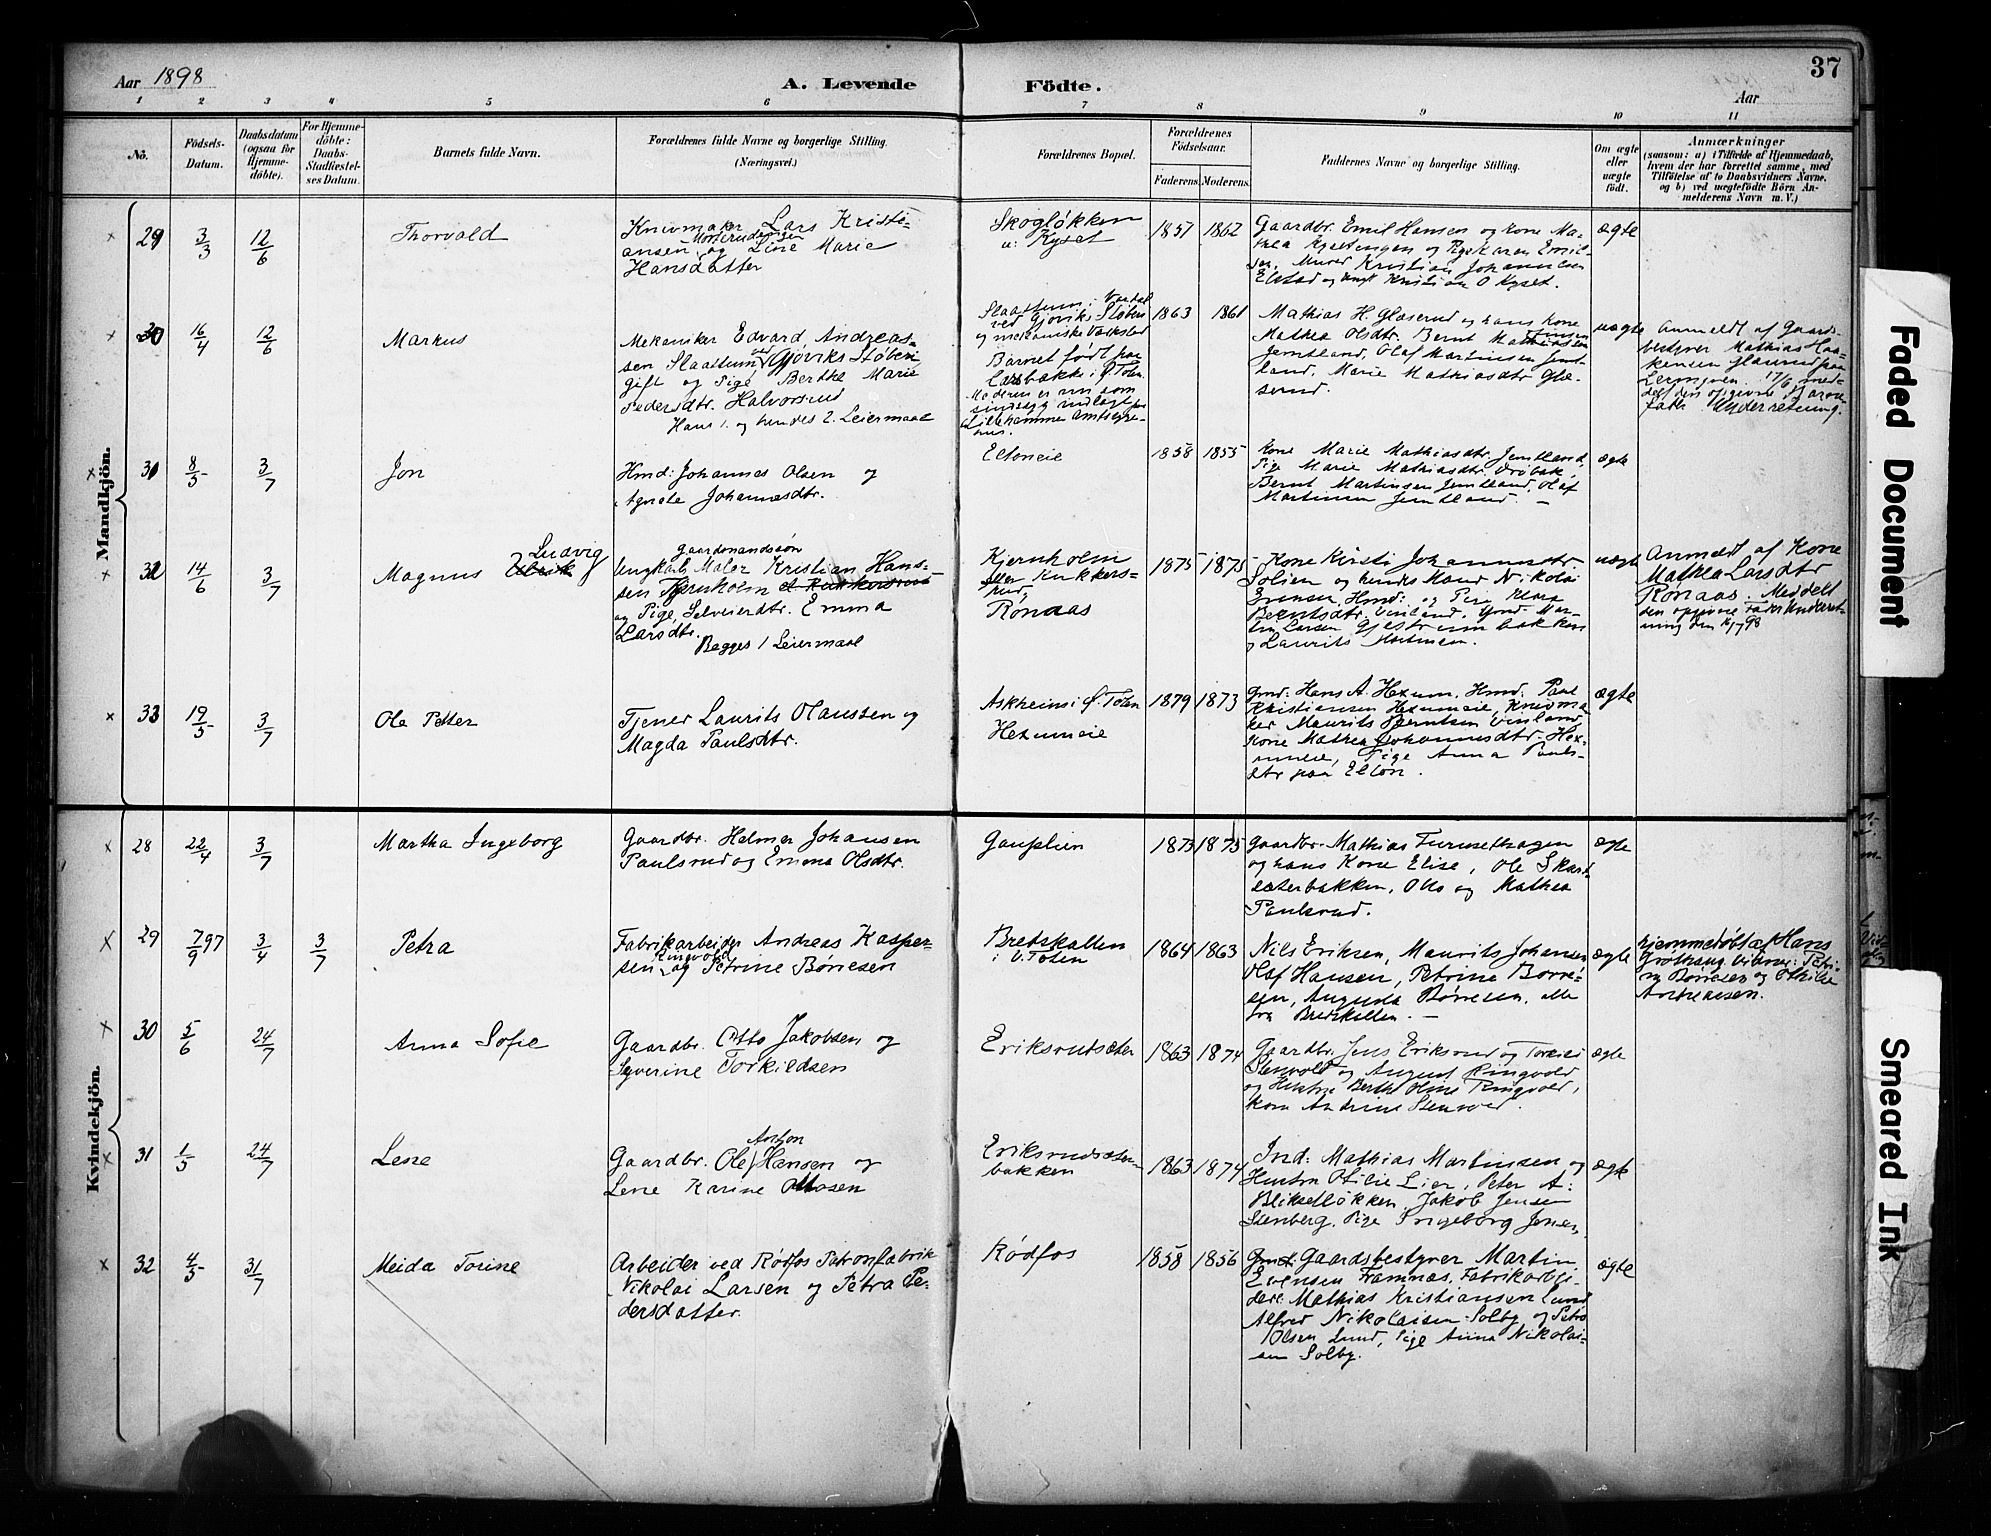 Aar 1898
A. Levende Födte.
37
Aar
1 2 3 4 5 6 7 8 9 10 11
No.
Födsels-
Datum.
Daabsdatum
(ogsaa for
Hjemme-
døbte).
For Hjemme-
døbte:
Daabs-
Stadfæstel-
ses Datum.
Barnets fulde Navn.
Forældrenes fulde Navne og borgerlige Stilling.
(Næringsvei.)
Forældrenes Bopæl.
Forældrenes
Födselsaar.
Faderens.
Moderens.
Faddernes Navne og borgerlige Stilling.
Om ægte
eller
uægte
födt.
Anmærkninger
(saasom: a) i Tilfælde af Hjemmedaab,
hvem der har forrettet samme, med
Tilföielse af to Daabsvidners Navne,
og b) ved uægtefödte Börn An-
melderens Navn m. V.)
Mandkjön.
× 29 3/3 12/6
Thorvald
Knivmaker Lars Kristi-
ansen og Line Marie
Hansdatter
Skogløkken
u: Kyset
1857 1862
Gaardbr. Emil Hansen og kone Ma-
thea Kysetengen og Pige Karen Emil-
Kristian Johannesen
Elstad og Kristian O Kyset.
ægte
× 30 16/4 12/6
Markus
Mekaniker Edvard Andreas-
sen Slaattum ved Gjøviks Støberi
gift og Pige Berthe Marie
Pedersdtr. Halvorsrud
Hans 1. og hendes 2. Leiermaal
Slaattum i Vardal
ved Gjøviks Støberi
og mekaniske Værksted
Barnet født paa
Larsbakke i Ø. Toten.
Moderen er nu som
sindssyg indlagt paa
Lillehammer Amtssyge-
hus.
1863 1861
Mathias H. Glæserud og hans kone
Mathea Olsdtr. Bernt Martinsen
Jemtland, Olaf Martinsen Jemt-
land, Marie Mathiasdtr. Glæ-
serud.
uægte
Anmeldt af Gaards-
bestyrer Mathias Haa-
kensen Glæserud paa
17/6 med-
delt den opgivne Barne-
fader Underretning.
× 31 8/5 3/7
Jon
Hmd: Johannes Olsen og
Agnete Johannesdtr.
Eltoneie
1858 1855
Kone Marie Mathiasdtr. Jemtland,
Pige Marie Mathiasdtr.
Bernt Martinsen Jemtland, Olaf
Martinsen Jemtland. —
ægte
× 32 14/6 3/7
Magnus Ludvig
Gaardmandssøn
Ungkarl Maler Kristian Hans-
sen Kjernholm
og Pige, Selveierdtr. Emma
Larsdtr.
Begges 1 Leiermaal
Kjernholm
eller Kukkers-
rud,
Rønaas
1875 1875
Kone Kirsti Johannesdtr.
Solien og hendes Mand Nikolai
Evensen, Hmd: og Pige Klara
Berntsdtr. Vinland. Ymd. Mar-
tin Larsen Gjestrumbakken
og Laurits Martinsen.
uægte
Anmeldt af Kone
Mathea Larsdtr
Rønaas. Meddelt
den opgivne Fader Underret-
ning den
× 33 19/5 3/7
Ole Petter
Tjener Laurits Olaussen og
Magda Paulsdtr.
Askheim i Ø. Toten
Hexumeie
1879 1873
Gmd: Hans A. Hexum. Hmd: Paul
Kristiansen Hexumeie, Knivma-
ker Maurits Berntsen Vinland
Kone Mathea Johannesdtr. Hex-
umeie, Pige Anna Pauls-
dtr paa Elton.
ægte
Kvindekjön.
× 28 22/4 3/7
Martha Ingeborg
Gaardbr. Helmer Johansen
Paulsrud og Emma Olsdtr.
Gauplien
1873 1875
Gaardbr. Mathias Furusethagen
og hans Kone Elise, Ole Skart-
seterbakken, Otto og Mathea
Paulsrud.
ægte
× 29 7/9 97 3/4 3/7
Petra
Fabrikarbeider Andreas Kasper-
sen Ringvold og Petrine Børresen
Bretskallen
i V. Toten
1864 1863
Nils Eriksen, Maurits Johansen
Olaf Hansen, Petrine Børre-
sen, Augusta Børresen, alle
fra Bredskallen. —
ægte
Hjemmedøbt af Hans
Grøthaug. Vidner: Petri-
ne Børresen og Othilie
Andreassen.
× 30 5/6 24/7
Anna Sofie
Gaardbr. Otto Jakobsen og
Syverine Torkildsen
Eriksrudsæter
1863 1874
Gaardbr. Jens Eriksrud og
Stenvold og August Ringvold
og Hustru Berthe Oline Ringvold,
Kone Andrine Stenvold.
ægte
× 31 1/5 24/7
Lene
Gaardbr. Ole Anton Hansen og
Lene Karine Ottosen
Eriksrudsæter-
bakken
1863 1874
Ind: Mathias Martinsen og
Hustru Otilie Lier, Peter A.
Blikseth­løkken, Jakob Jensen
Stenberg, Pige Ingeborg Jensen.
ægte
× 32 4/5 31/7
Meida Torine
Arbeider ved Rødfos Patronfabrik
Nikolai Larsen og Petra Pe-
dersdatter.
Rødfos
1858 1856
Gaardsbestyrer Martin
Evensen Framnæs, Fabrikarbei-
dere Mathias Kristiansen Lund
Alfred Nikolaisen Solby og Petra
Olsen Lund, Pige Anna Nikolai-
sen Solby.
ægte
Faded Document
Smeared Ink